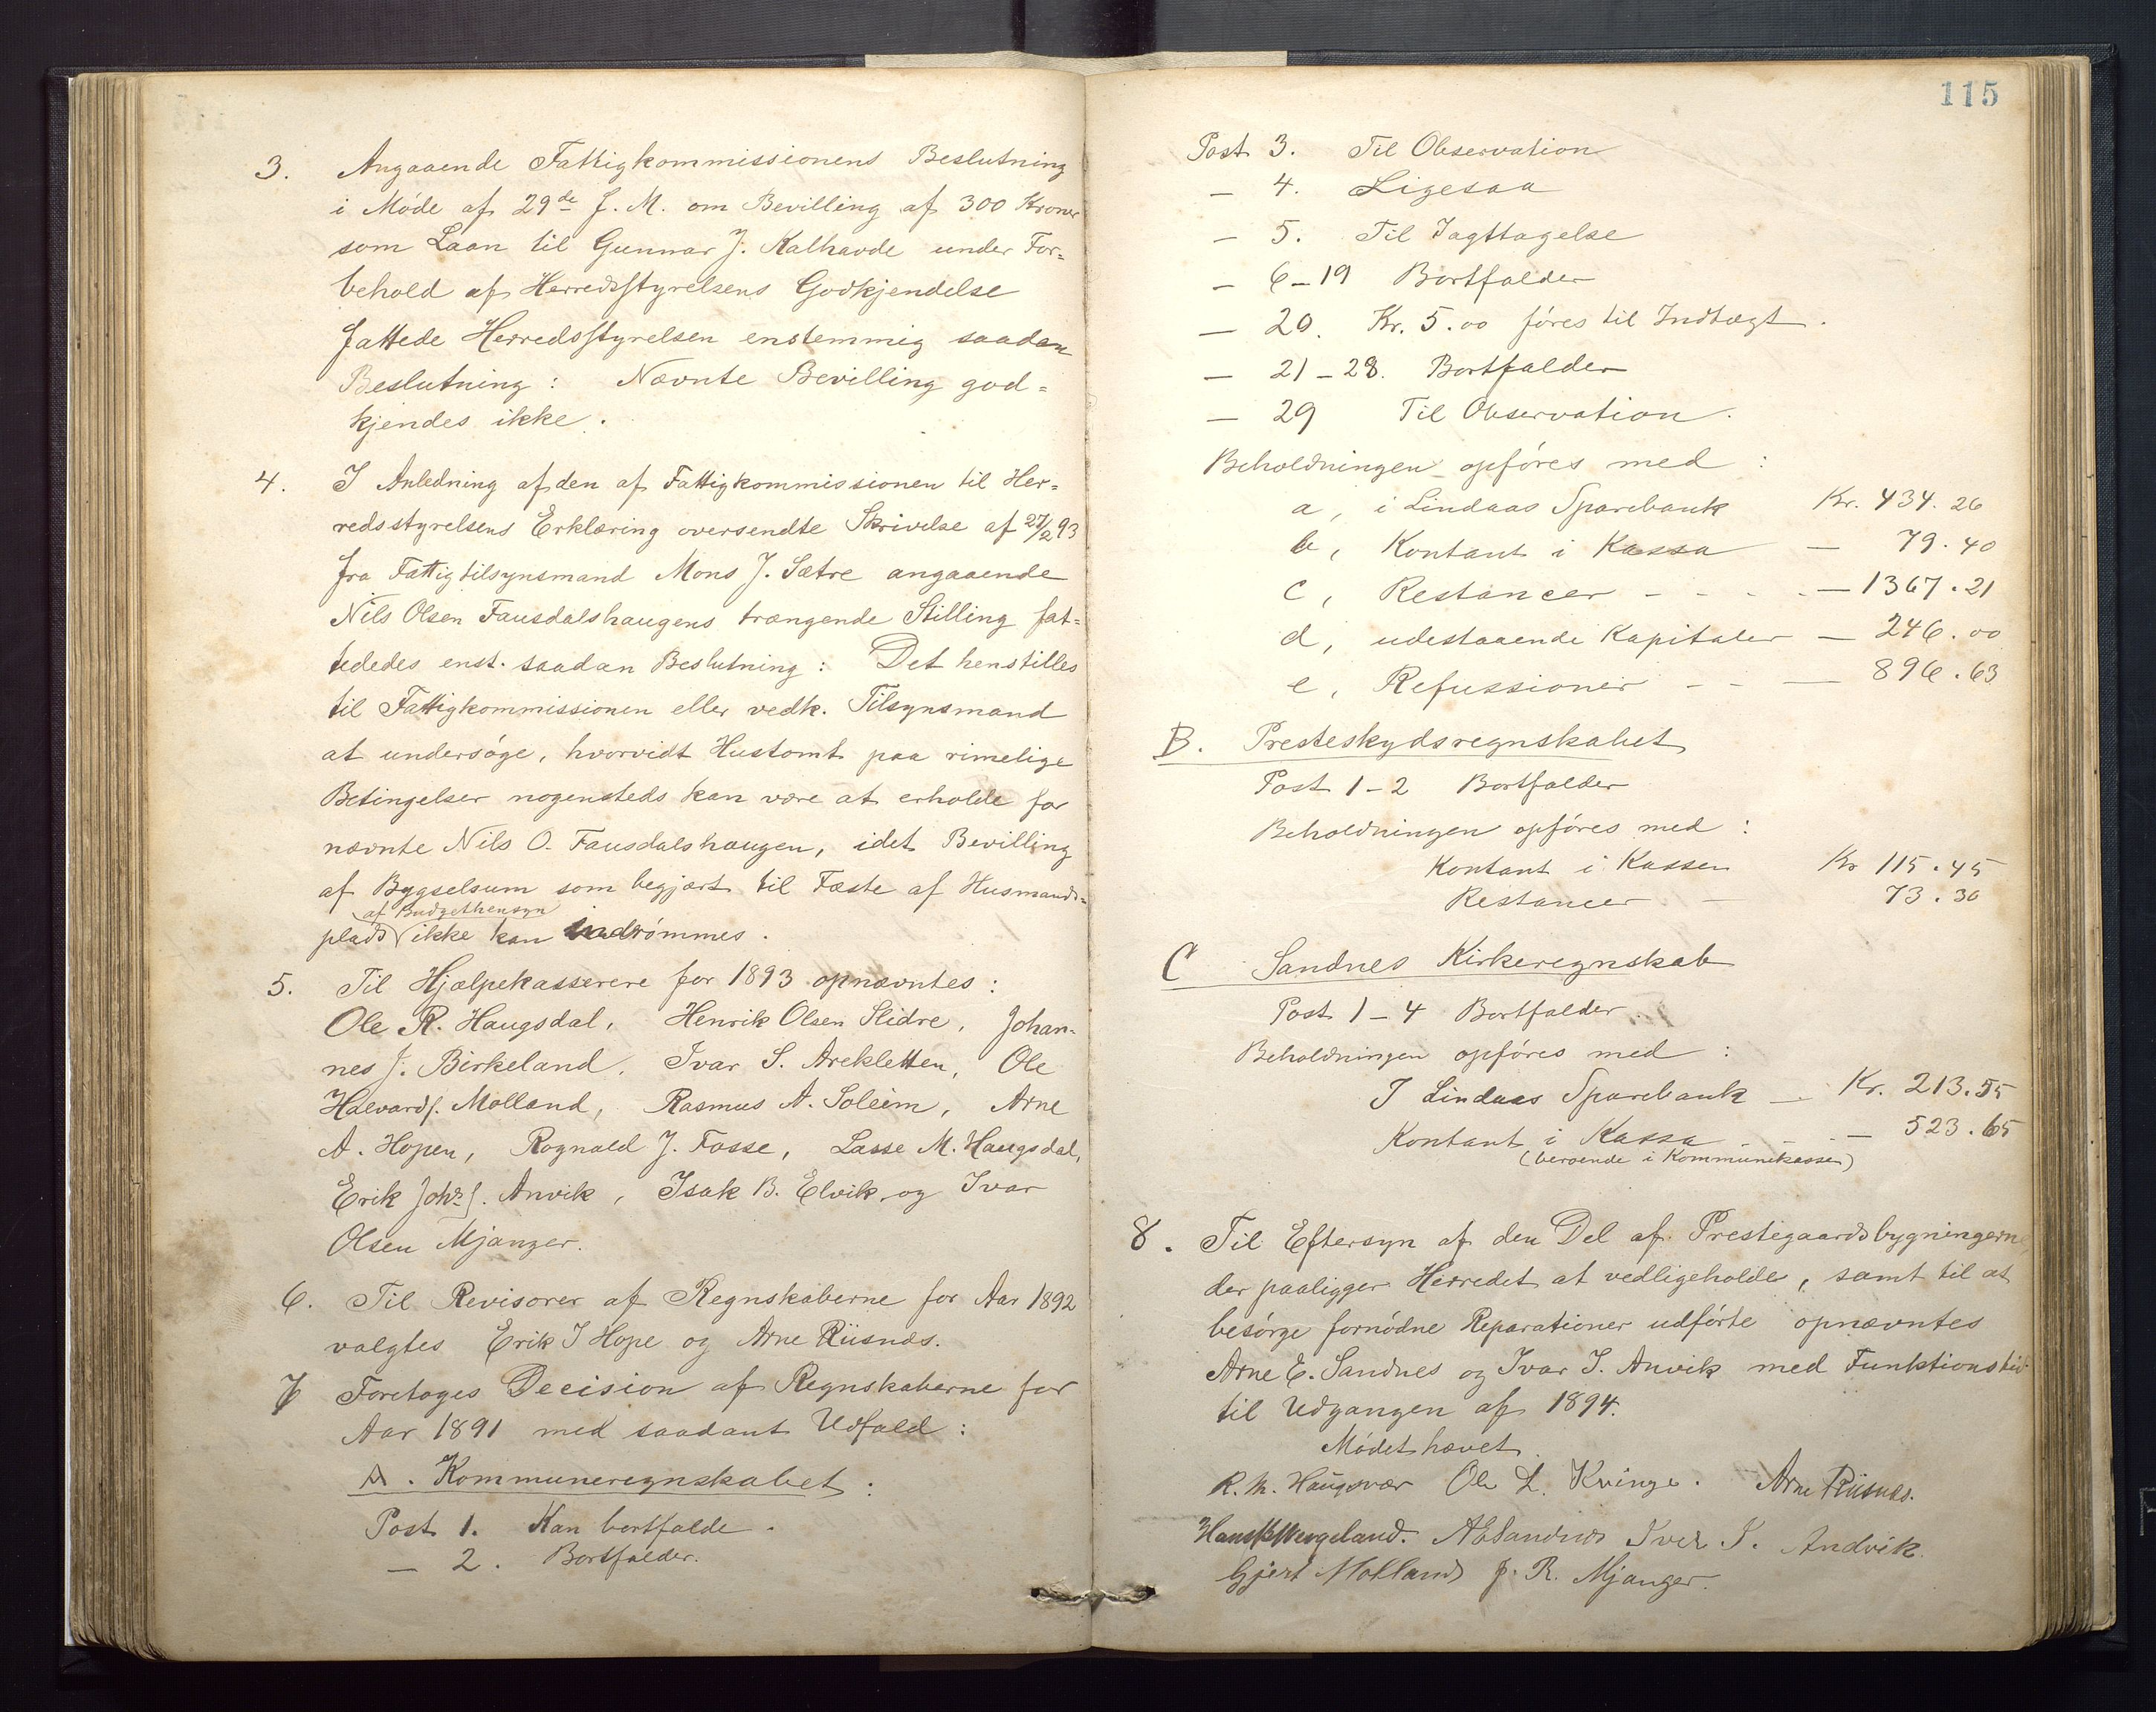 3. Angaaende Fattigkommissionens Beslutning
i Møde af 29de f. M. om Bevilling af 300 Kroner
som Laan til Gunnar J. Kalhavde under For=
behold af Herredsstyrelsens Godkjendelse
fattede Herredsstyrelsen enstemmig saadan
Beslutning: Nævnte Bevilling god=
kjendes ikke.
4. I Anledning af den af Fattigkommissionen til Her=
redsstyrelsens Erklæring oversendte Skrivelse af 27/2 93
fra Fattigtilsynsmand Mons J. Sætre angaaende
Nils Olsen Fausdalshaugens trængende Stilling fat=
tededes enst. saadan Beslutning: Det henstilles
til Fattigkommissionen eller vedk. Tilsynsmand
at undersøge, hvorvidt Hustomt paa rimelige
Betingelser nogensteds kan være at erholde for
nævnte Nils O. Fausdalshaugen, idet Bevilling
af Bygselsum som begjært til Fæste af Husmands=
af Budgethensyn
plads ikke kan indrømmes.
5. Til Hjælpekasserere for 1893 opnævntes:
Ole R. Haugsdal, Henrik Olsen Slidre, Johan=
nes J. Birkeland, Ivar S. Arekletten, Ole
Halvards. Molland, Rasmus A. Soleim, Arne
A. Hopen, Rognald J. Fosse, Lasse M. Haugsdal,
Erik Johs. Anvik, Isak B. Elvik og Ivar
Olsen Mjanger.
6. Til Revisorer af Regnskaberne for Aar 1892
valgtes Erik I Hope og Arne Riisnes.
7 Foretoges Decision af Regnskaberne for
Aar 1891 med saadant Udfald:
A. Kommuneregnskabet:
Post 1. Kan bortfalde.
— 2. Bortfalder.
115
Post 3. Til Observation
— 4. Ligesaa
— 5. Til Iagttagelse
— 6–19 Bortfalder
— 20. Kr. 5.00 føres til Indtægt.
— 21–28. Bortfalder
— 29 Til Observation.
Beholdningen opføres med:
a, i Lindaas Sparebank Kr. 434.26
b, Kontant i Kassa — 79.40
c, Restancer - - - — 1367.21
d, udestaaende Kapitaler — 246.00
e, Refussioner - - — 896.63
B. Presteskydsregnskabet
Post 1–2 Bortfalder
Beholdningen opføres med:
Kontant i Kassen Kr 115.45
Restancer - 73.30
C Sandnes Kirkeregnskab
Post 1–4 Bortfalder.
Beholdningen opføres med:
I Lindaas Sparebank — Kr. 213.55
Kontant i Kassa - - — 523.65
(beroende i Kommunekassen)
8. Til Eftersyn af den Del af Prestegaardsbygningerne,
der paaligger Herredet at vedligeholde, samt til at
besørge fornødne Reparationer udførte opnævntes
Arne E. Sandnes og Ivar I. Anvik med Funktionstid
til Udgangen af 1894.
Mødet hævet.
R. M. Haugsvær Ole L. Kvinge. Arne Riisnes.
Hans Wergeland. AESandnes Iver I. Andvik.
Gjert Molland J. R. Mjanger.